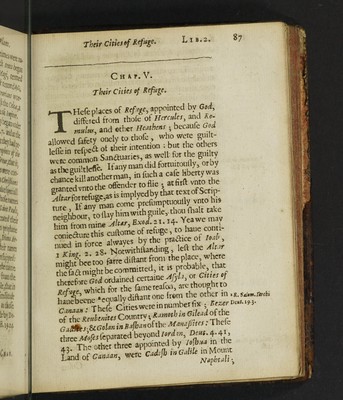 Their Cities of Refuge. LIB. 2. 87
CHAP. V.
Their Cities of Refuge.
THese places of Refuge, appointed by God,
differed from those of Hercules, and Ro-
mulus, and other Heathens; because God
allowed safety onely to those, who were guilt-
lesse in respect of their intention: but the others
were common Sanctuaries, as well for the guilty
as the guiltlesse. If any man did fortuitously, or by
chance kill another man, in such a case liberty was
granted vnto the offender to flie; at first vnto the
Altar for refuge, as is implyed by that text of Scrip-
ture, If any man come presumptuously vnto his
neighbour, to slay him with guile, thou shalt take
him from mine Altar, Exod. 21. 14. Yea we may
coniecture this custome of refuge, to haue conti-
nued in force alwayes by the practice of Ioab,
1 King. 2. 28. Notwithstanding, lest the Altar
might bee too farre distant from the place, where
the fact might be committed, it is probable, that
therefore God ordained certaine Asyla, or Cities of
Refuge, which for the same reason, are thought to
haue beene equally distant one from the other in
Canaan: These Cities were in number six; Bezer
of the Reubenites Country; Ramoth in Gilead of the
Gadites; & Golan in Bashan of the Manassites: These
three Moses separated beyond Iorden, Deut. 4. 41,
43. The other three appointed by Ioshua in the
Land of Canaan, were Cadesh in Galile in Mount
Naphtali;
Deut. 19. 3.